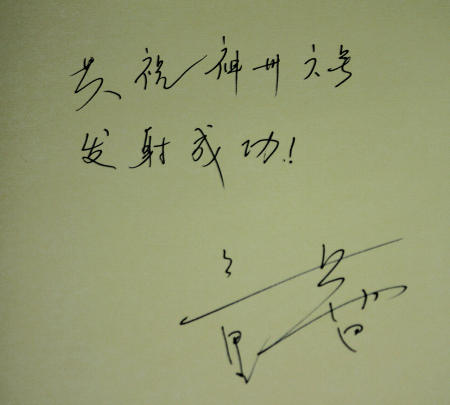 共祝神州六号
发射成功!